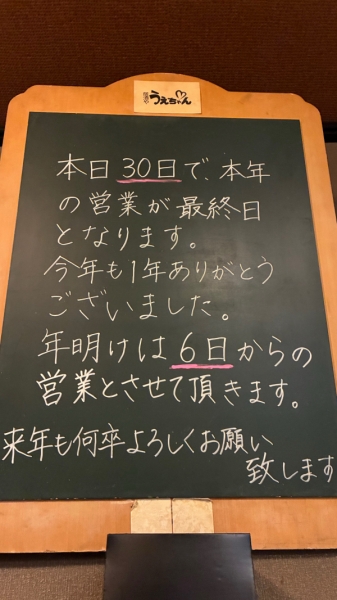 うえちゃん
本日30日で、本年
の営業が最終日
となります。
今年も1年ありがとう
ございました。
年明けは6日からの
営業とさせて頂きます。
来年も何卒よろしくお願い
致します